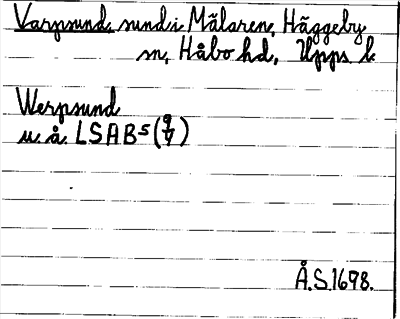 Varpsund, sund i Mälaren, Häggeby
sn, Håbo hd, Upps. l.
Werpsund
u. å. LSAB S (9/7)
Å.S. 1698.